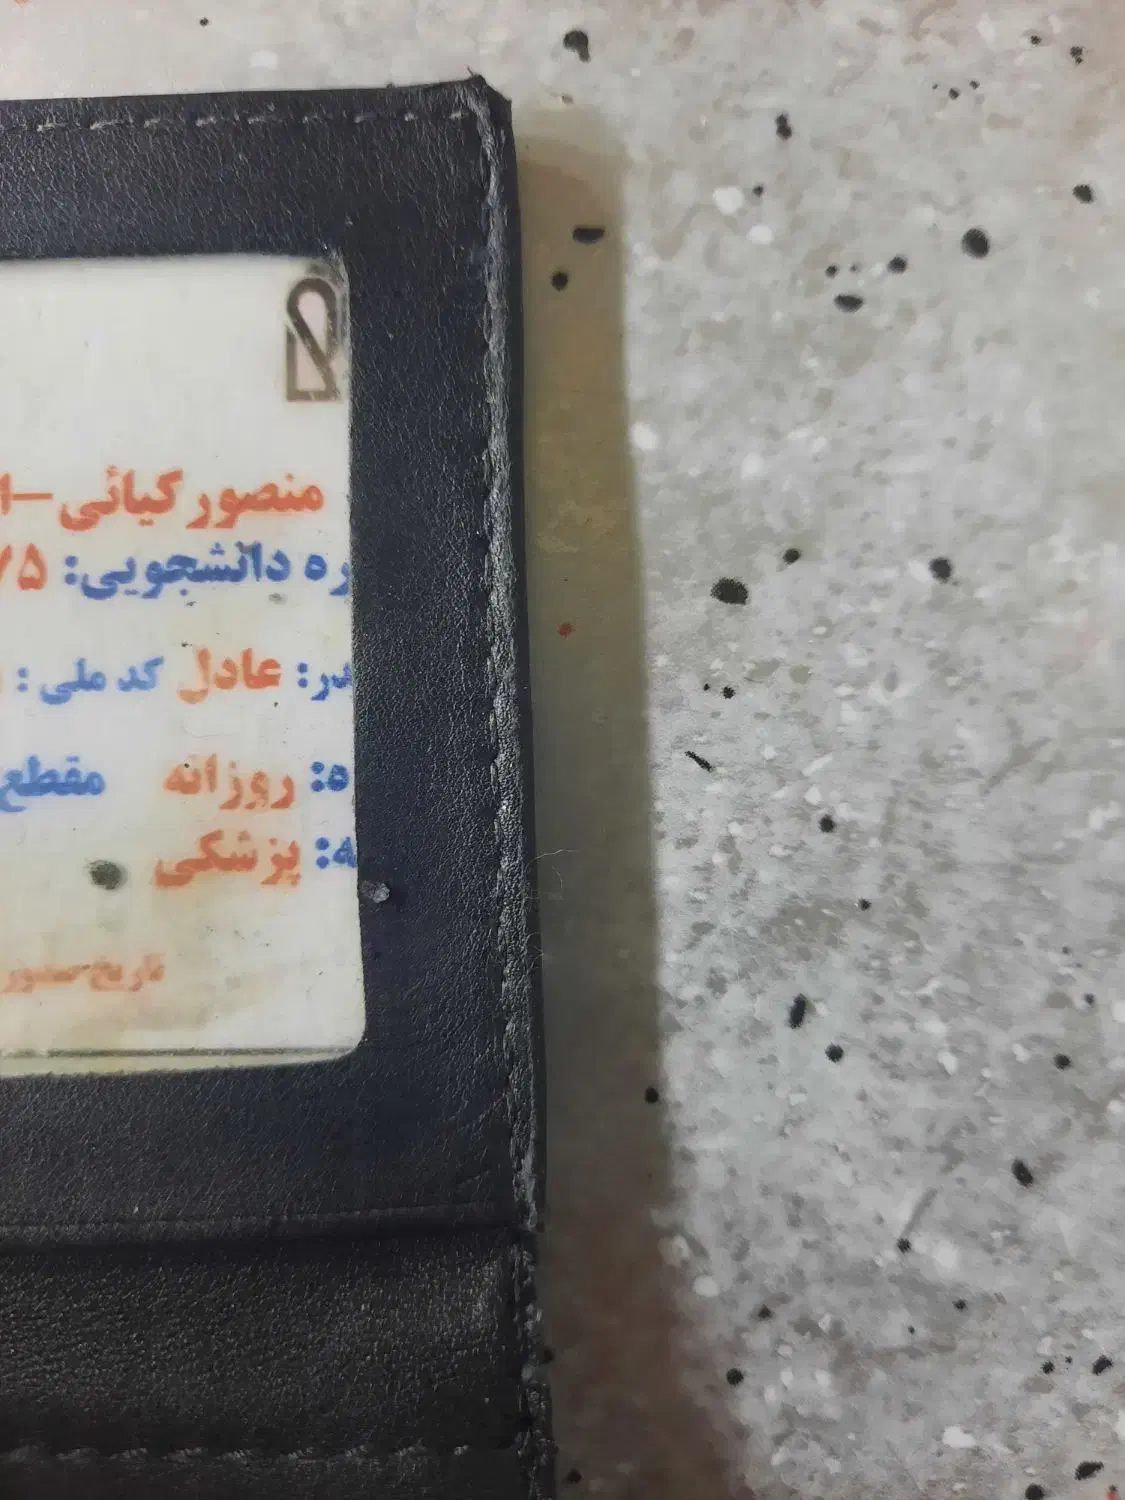 منصور کیائی-ا
ره دانشجویی: ۷۵
در: عادل کد ملی :
ه: روزانه مقطع
ه: پزشکی
تاریخ صدور